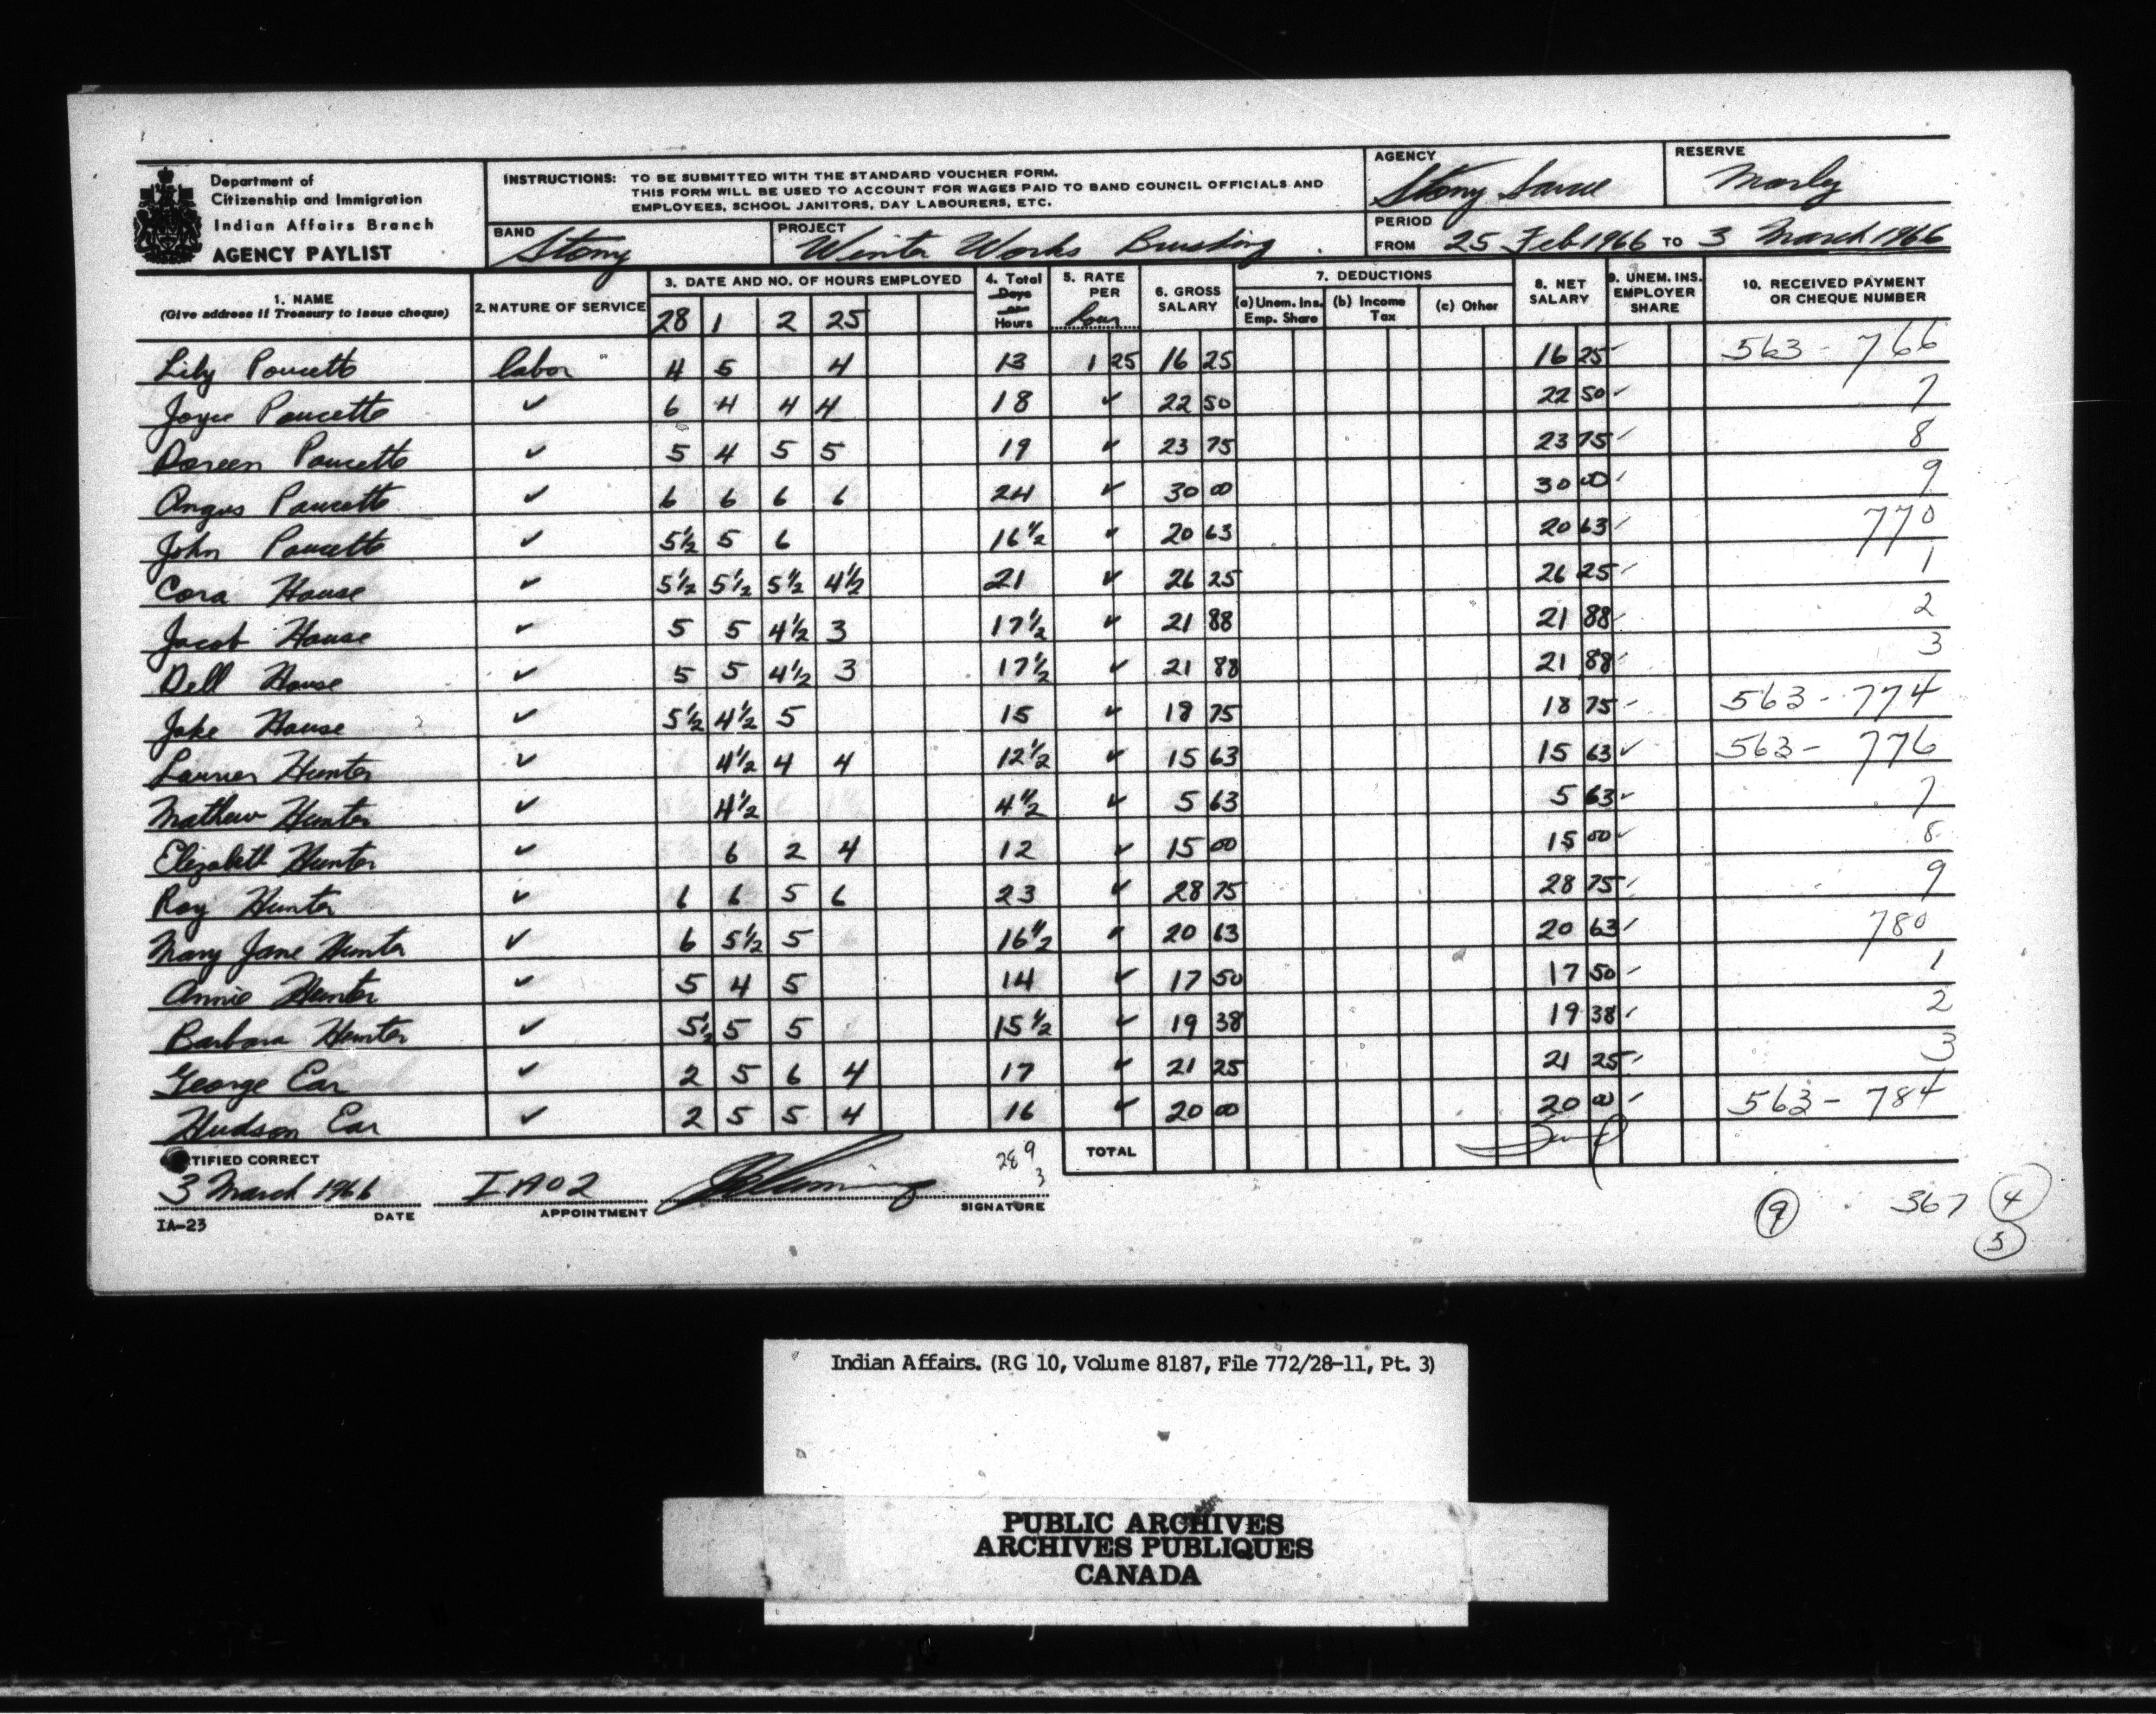 Department of
Citizenship and Immigration
Indian Affairs Branch
AGENCY PAYLIST
INSTRUCTIONS: TO BE SUBMITTED WITH THE STANDARD VOUCHER FORM.
THIS FORM WILL BE USED TO ACCOUNT FOR WAGES PAID TO BAND COUNCIL OFFICIALS AND
EMPLOYEES, SCHOOL JANITORS, DAY LABOURERS, ETC.
AGENCY Stony Sarcee
RESERVE Morley
BAND Stony
PROJECT Winter Works Brushing
PERIOD
FROM 25 Feb 1966 TO 3 March 1966
1. NAME
(Give address if Treasury to issue cheque)
2. NATURE OF SERVICE
3. DATE AND NO. OF HOURS EMPLOYED
28 1 2 25
4. Total
Days
or
Hours
5. RATE
PER
hour
6. GROSS
SALARY
7. DEDUCTIONS
(a) Unem. Ins.
Emp. Share
(b) Income
Tax
(c) Other
8. NET
SALARY
9. UNEM. INS.
EMPLOYER
SHARE
10. RECEIVED PAYMENT
OR CHEQUE NUMBER
Lily Poucette labor 4 5 4 13 1 25 16 25 16 25 563-766
Joyce Poucette ✓ 6 4 4 4 18 ✓ 22 50 22 50 ✓ 7
Doreen Poucette ✓ 5 4 5 5 19 ✓ 23 75 23 75 ✓ 8
Angus Poucette ✓ 6 6 6 6 24 ✓ 30 00 30 00 ✓ 9
John Poucette ✓ 5½ 5 6 16½ ✓ 20 63 20 63 ✓ 770
Cora House ✓ 5½ 5½ 5½ 4½ 21 ✓ 26 25 26 25 ✓ 1
Jacob House ✓ 5 5 4½ 3 17½ ✓ 21 88 21 88 ✓ 2
Dell House ✓ 5 5 4½ 3 17½ ✓ 21 88 21 88 ✓ 3
Jake House ✓ 5½ 4½ 5 15 ✓ 18 75 18 75 ✓ 563-774
Hunter ✓ 4½ 4 4 12½ ✓ 15 63 15 63 ✓ 563-776
Mathew Hunter ✓ 4½ 4½ ✓ 5 63 5 63 ✓ 7
Elizabeth Hunter ✓ 6 2 4 12 ✓ 15 00 15 00 ✓ 8
Roy Hunter ✓ 6 6 5 6 23 ✓ 28 75 28 75 ✓ 9
Mary Jane Hunter ✓ 6 5½ 5 16½ ✓ 20 63 20 63 ✓ 780
Annie Hunter ✓ 5 4 5 14 ✓ 17 50 17 50 ✓ 1
Barbara Hunter ✓ 5½ 5 5 15½ ✓ 19 38 19 38 ✓ 2
George Ear ✓ 2 5 6 4 17 ✓ 21 25 21 25 ✓ 3
Hudson Ear ✓ 2 5 5 4 16 ✓ 20 00 20 00 ✓ 563-784
TIFIED CORRECT
289
3
TOTAL
3 March 1966 IA02
DATE APPOINTMENT SIGNATURE
IA-23
9 367 4
5
Indian Affairs. (RG 10, Volume 8187, File 772/28-11, Pt. 3)
PUBLIC ARCHIVES
ARCHIVES PUBLIQUES
CANADA